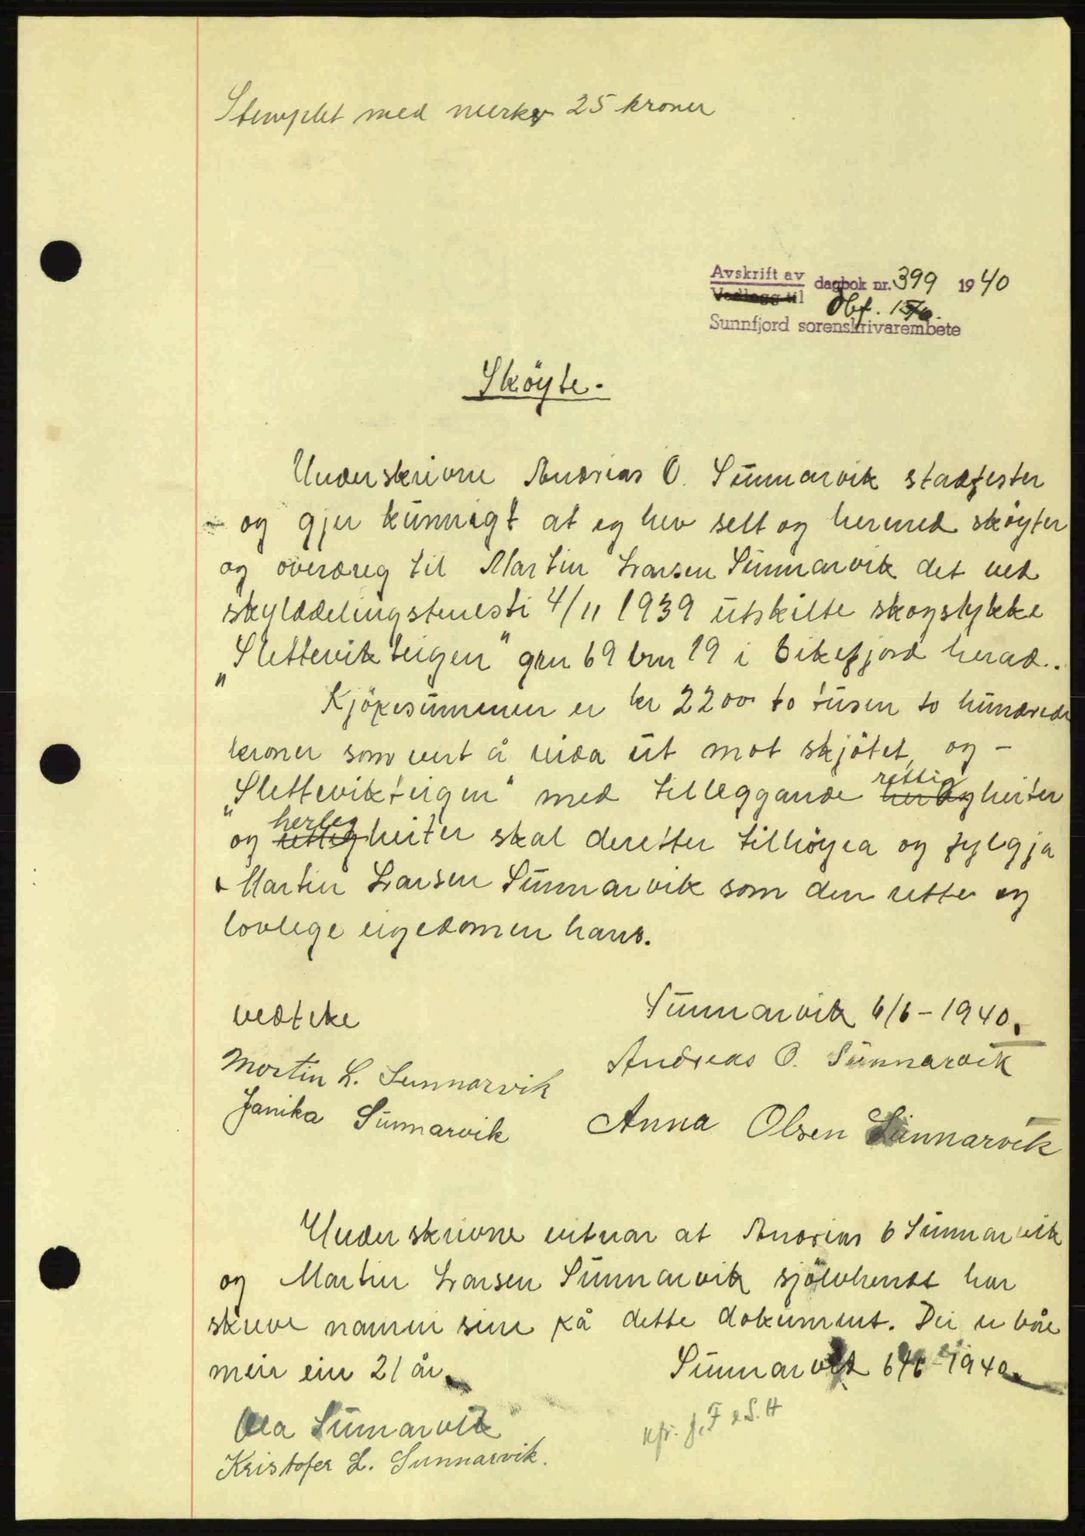 Stemplet med merker 25 kroner
Avskrift av dagbok nr. 399 1940
Vedlegg til
Sunnfjord sorenskrivarembete
Sköyte.
Underskrivne Andreas O. Sunnarvik stadfester
og gjer kunnigt at eg hev selt og hermed sköyter
og överdreg til Martin Larsen Sunnarvik det ved
skylddelingstenesti 4/11 1939 utskilte skogstykke
"Slettevikteigen" gnr 69 bnr 19 i Eikefjord herad.
Kjöpesummen er kr 2200 to tusen to hundrede
kroner som vert å reida ut mot skjötet, og –
"Slettevikteigen" med tilleggande rettigheiter
og herlegheiter skal deretter tilhöyra og fylgja
Martin Larsen Sunnarvik som den rette og
lovlege eigedomen hans.
vedteke
Sunnarvik 6/6 – 1940.
Martin L. Sunnarvik
Andreas O. Sunnarvik
Janika Sunnarvik
Anna Olsen Sunnarvik
Underskrivne vitnar at Andreas O Sunnarvik
og Martin Larsen Sunnarvik sjölvhendt har
skreve namni sine på dette dokument. Dei er båe
meir ein 21 år.
Sunnarvik 6/6 – 1940.
Ola Sunnarvik
Kristofer L. Sunnarvik.